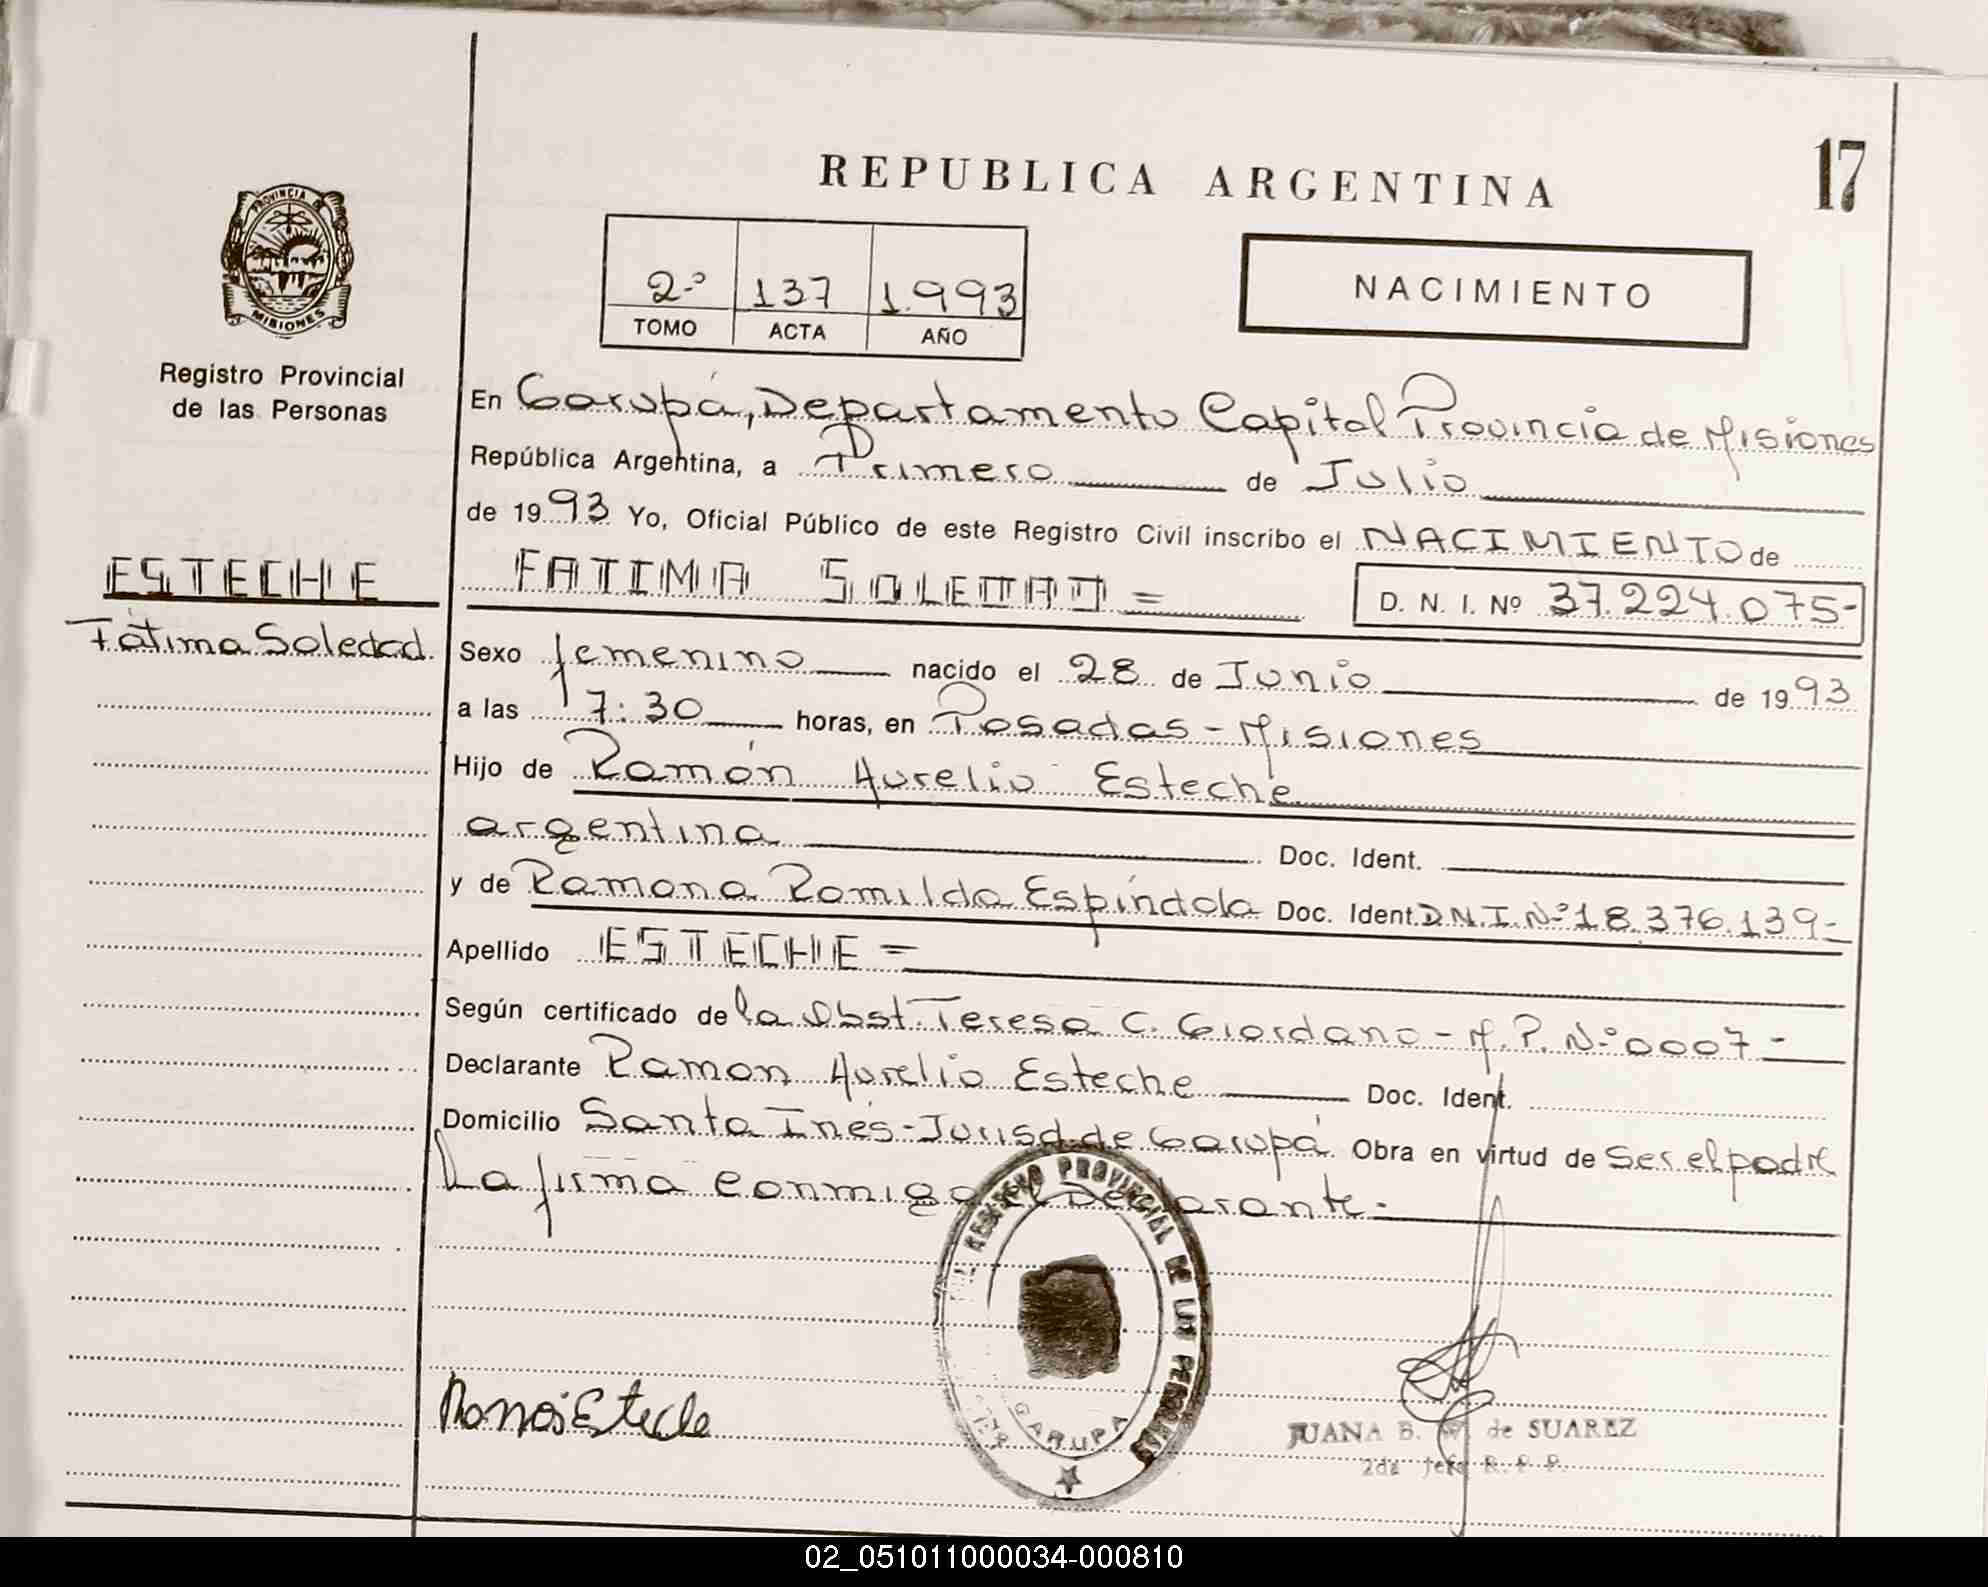 REPUBLICA ARGENTINA
17
PROVINCIA DE
MISIONES
Registro Provincial
de las Personas
2º 137 1.993
TOMO ACTA AÑO
NACIMIENTO
En Garupá, Departamento Capital Provincia de Misiones
República Argentina, a Primero de Julio
de 1993 Yo, Oficial Público de este Registro Civil inscribo el NACIMIENTO de
ESTECHE
FATIMA SOLEDAD = D. N. I. Nº 37.224.075-
Fátima Soledad
Sexo femenino nacido el 28 de Junio de 1993
a las 17:30 horas, en Posadas - Misiones
Hijo de Ramón Aurelio Esteche
argentina Doc. Ident.
y de Ramona Romilda Espíndola Doc. Ident. D.N.I. Nº 18.376.139-
Apellido ESTECHE =
Según certificado de la Obst. Teresa C. Giordano - M.P. Nº 0007 -
Declarante Ramon Aurelio Esteche Doc. Ident.
Domicilio Santa Inés - Jurisd. de Garupá Obra en virtud de ser el padre
La firma conmigo el Declarante.-
REGISTRO PROVINCIAL DE LAS PERSONAS
GARUPA
Ramon Esteche
JUANA B. de SUAREZ
2da Jefe R. P. P.
02_051011000034-000810